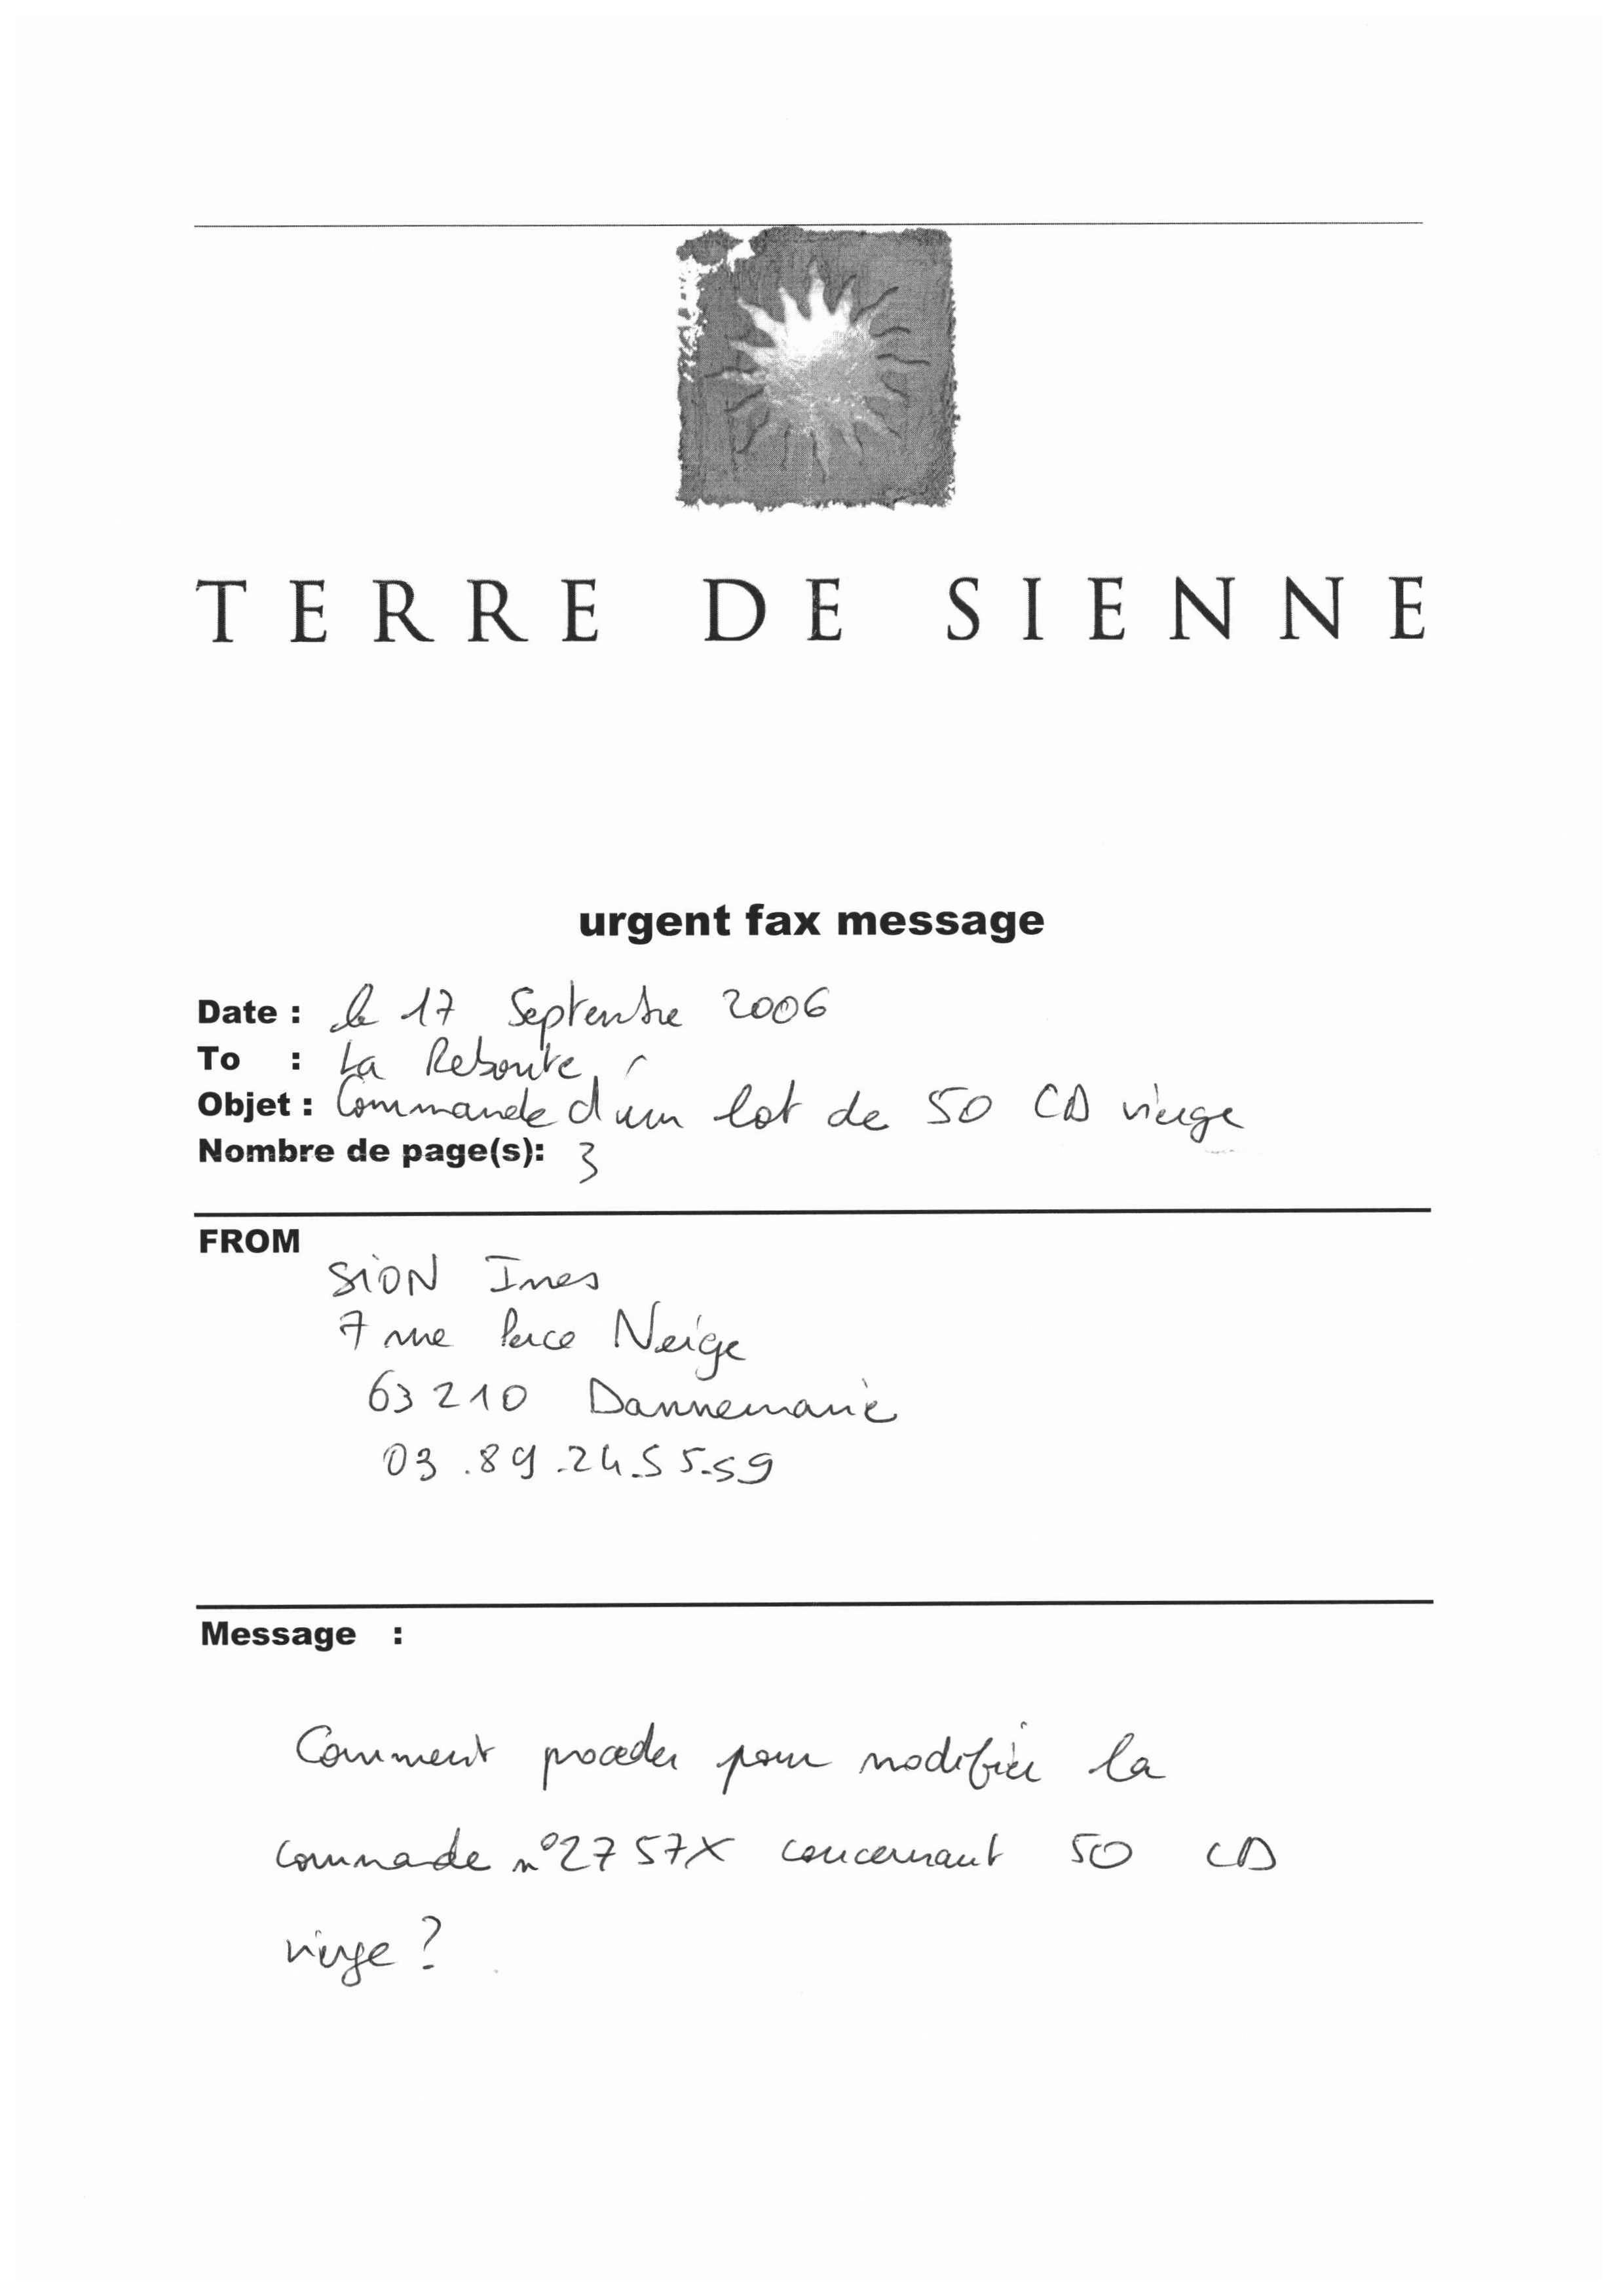 TERRE DE SIENNE
urgent fax message
Date : le 17 Septembre 2006
To : La Reboute
Objet : Commande d'un lot de 50 CD vierge
Nombre de page(s): 3
FROM
SION Ines
7 rue Perce Neige
63210 Dannemarie
03.89.24.55.59
Message :
Comment proceder pour modifier la
commade n°2757X concernant 50 CD
vierge ?